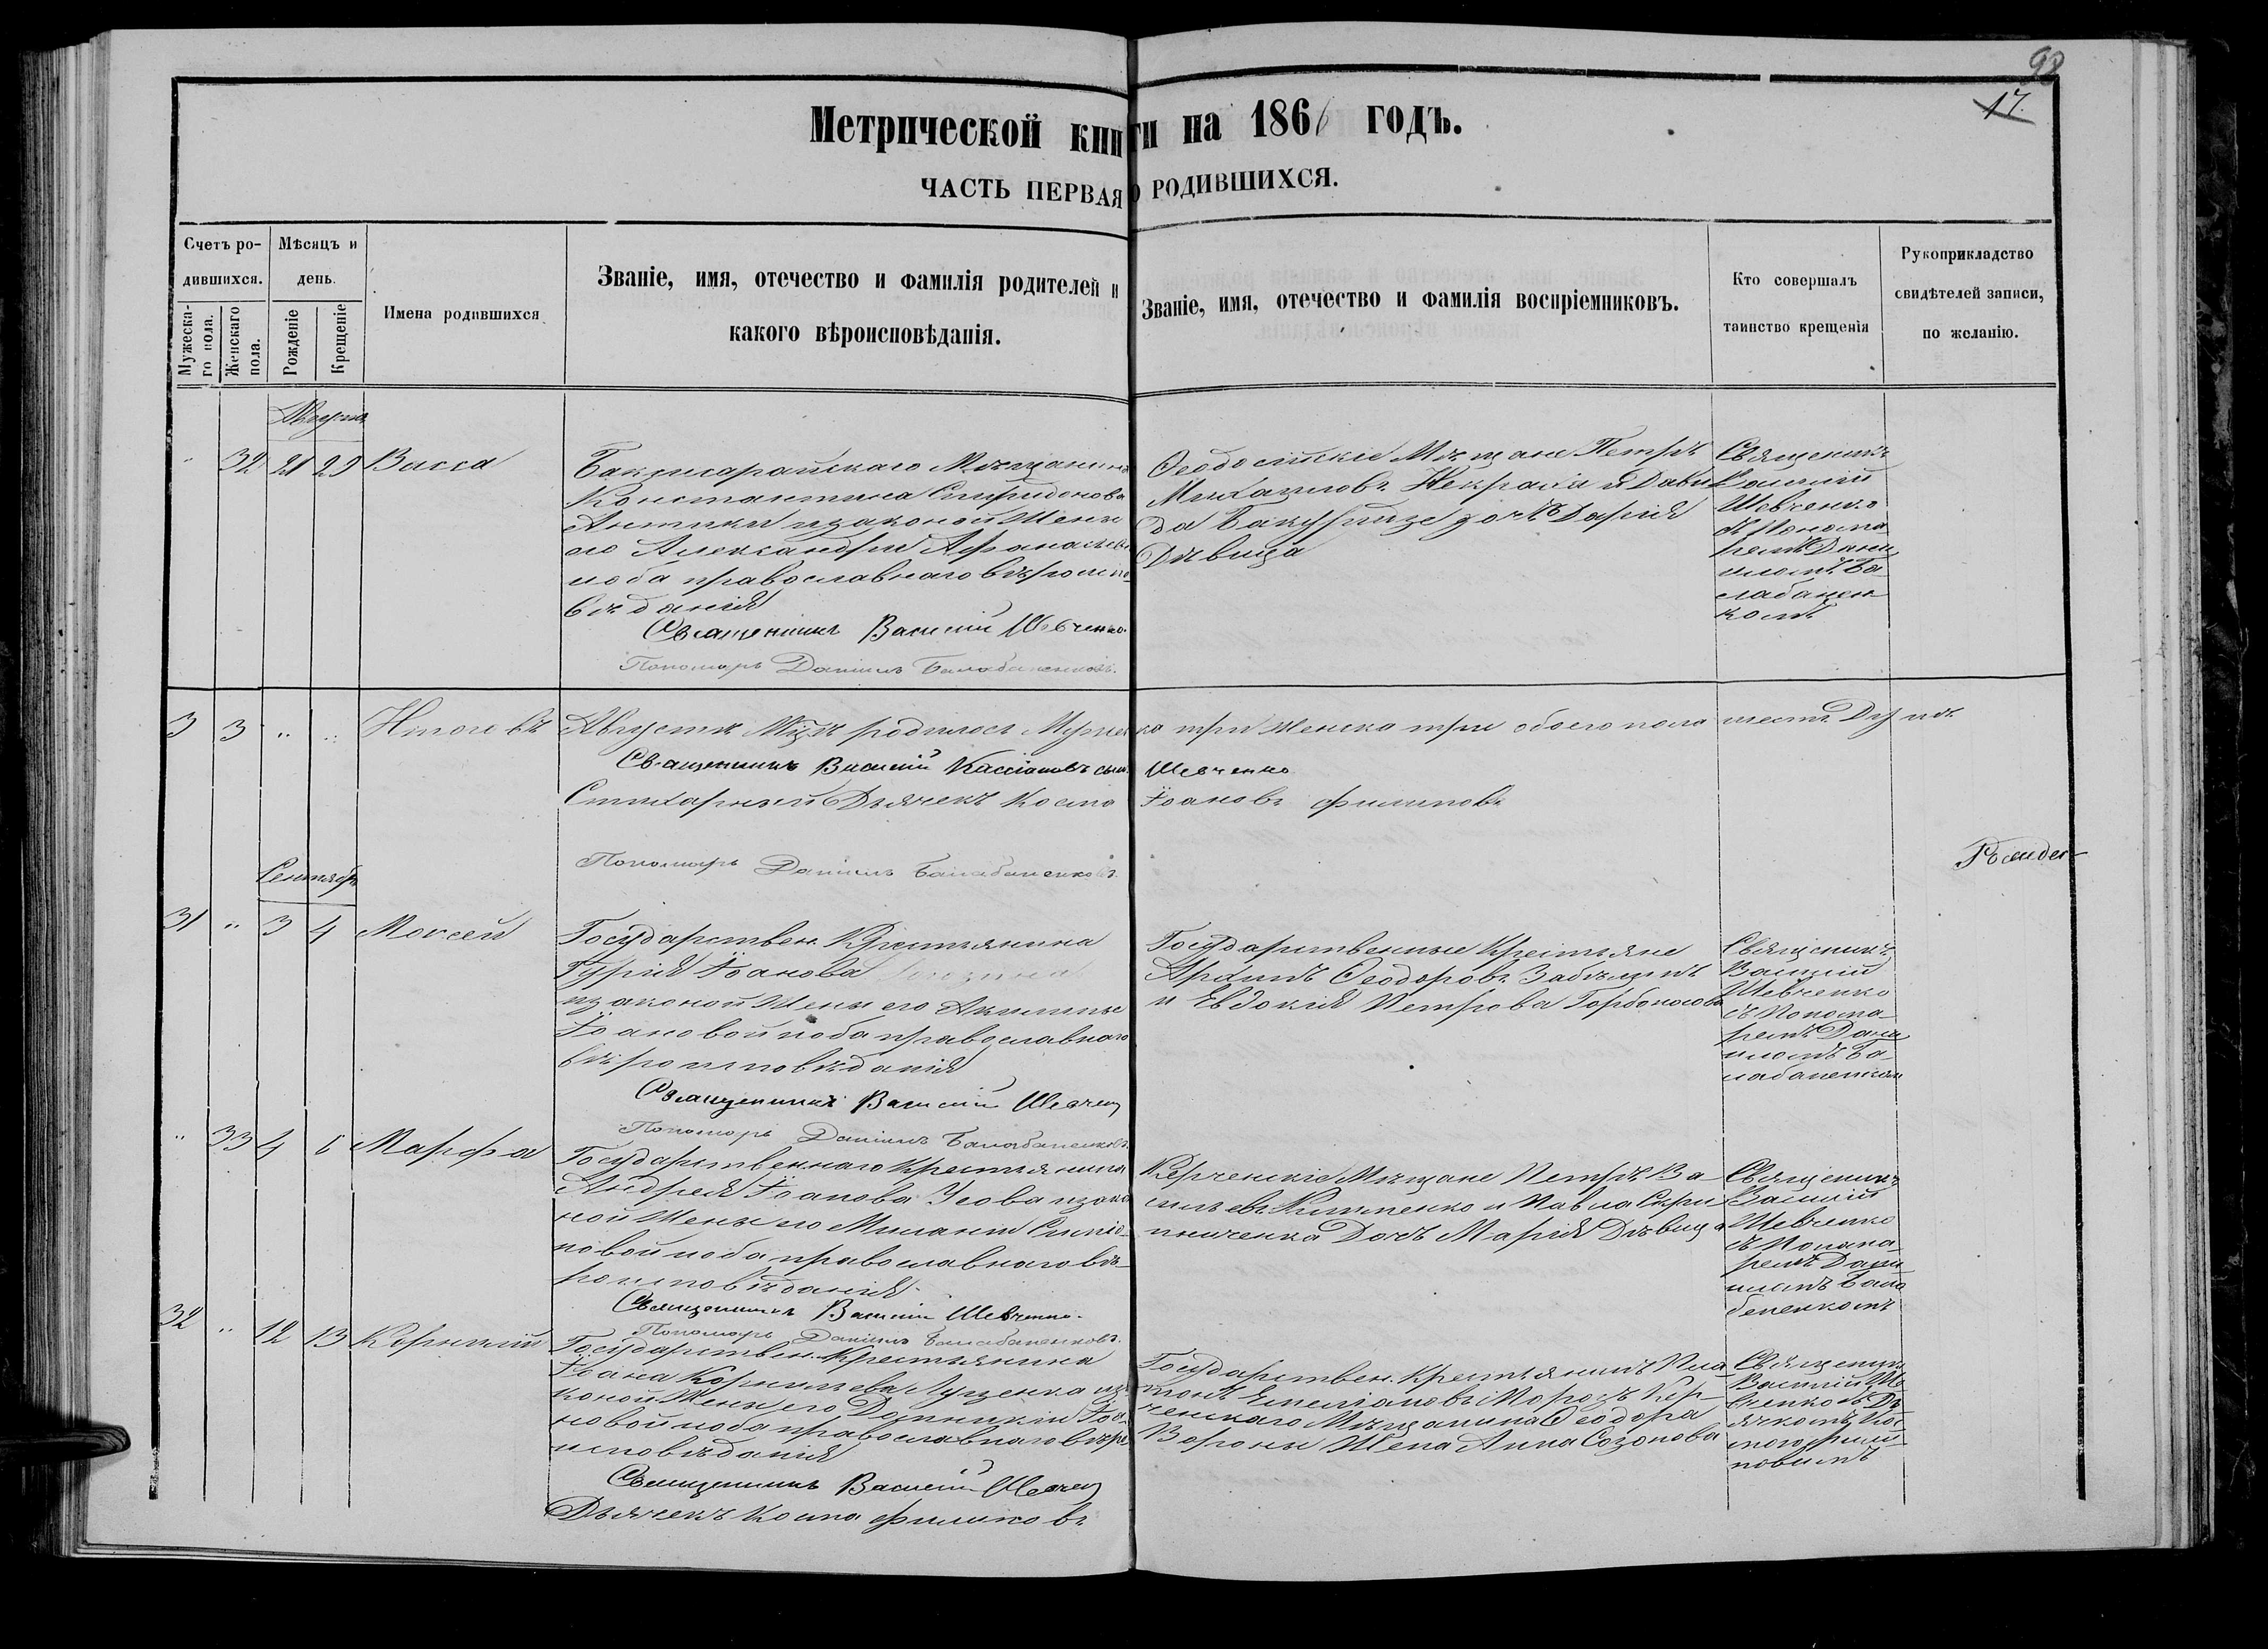 98
17.
Метрической книги на 1866 годъ.
ЧАСТЬ ПЕРВАЯ О РОДИВШИХСЯ.
Счетъ ро-
дившихся.
Мужеска-
го пола.
Женскаго
пола.
Мѣсяцъ и
день.
Рожденіе
Крещеніе
Имена родившихся
Званіе, имя, отечество и фамилія родителей и
какого вѣроисповѣданія.
Званіе, имя, отечество и фамилія воспріемниковъ.
Кто совершалъ
таинство крещенія
Рукоприкладство
свидѣтелей записи,
по желанію.
Августъ
32 21 29 Васса
Бакчисарайскаго Мѣщанина
Константина Спиридонова
изаконой Жены
его Александры Афанасьево
оба православнаго вѣроиспо
вѣданія
Священникъ Василій Шевченко.
Пономарь Даніилъ Балабаненковъ.
Ѳеодосійскіе Мѣщане Петръ
Михаиловъ Некраха и Дави
да дочь Дарія
Дѣвица
Священикъ
Василій
Шевченко
съ Понома
ремъ Дани
иломъ Ба
лабанен
комъ
3 3 " " Итого въ Августѣ Мцѣ родилось Мужеска три Женска три обоего пола шесть Душъ
Священникъ Василій Кассіановъ сынъ Шевченко
Стихарный Дьячекъ Косма Іоановъ Филиповъ
Пономарь Даніилъ Балабаненковъ.
Сентябрь
31 " 3 4 Моисей
Государствен. Крестьянина
Гурія Іоанова
изаконой Жены его Акилины
Іоановой оба православнаго
вѣроисповѣданія
Священникъ Василій Шевчен
Пономарь Даніилъ Балабаненковъ.
Государственные Крестьяне
Архипъ Ѳеодоровъ
и Евдокія Петрова Горбоносова
Священикъ
Василій
Шевченко
съ Понома
ремъ Дани
иломъ Ба
лабаненком
" 33 4 Марфа
Государственнаго Крестьянина
Андрея Іоанова Усова изако
ной Жены его Миланіи
новой оба православнаго вѣ
роисповѣданія
Священникъ Василій Шевченко.
Пономарь Даніилъ Балабаненковъ.
Керченскіе Мѣщане Петръ Ва
сильевъ и Павла Скри
пниченка Дочь Марія Дѣвица
Священикъ
Василій
Шевченко
съ Понома
ремъ Дани
иломъ Бала
бененкомъ
32 " 12 13 Корнилій
Государствен. Крестьянина
Іоана Корнильева Луценка иза
коной Жены его Домникіи Іоа
новой оба православнаго вѣро
исповѣданія
Священникъ Василій Шевчен
Дьячекъ Косма Филиповъ
Государствен. Крестьянинъ Пла
тонъ Емеліановъ Морозъ Кер
ченскаго Мѣщанина Ѳеодора
Вороны Жена Анна Созонова
Священикъ
Василій Ше
вченко съ Дь
ячкомъ Кос
мою Фили
повымъ